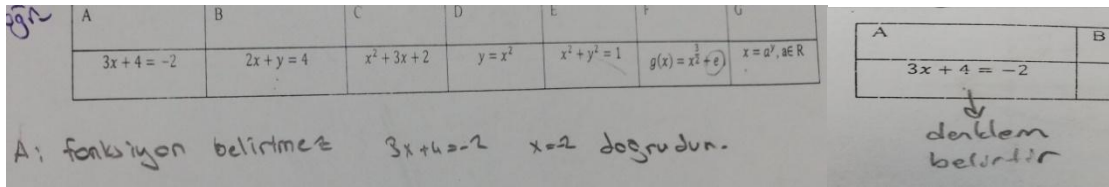 A B C D E F G
3x + 4 = −2 2x + y = 4 x² + 3x + 2 y = x² x² + y² = 1 g(x) = x^½ + e x = aʸ, a∈R
A: fonksiyon belirtmez 3x+4=-2 x=2 doğrudur.
A B
3x + 4 = −2
↓
denklem
belirtir